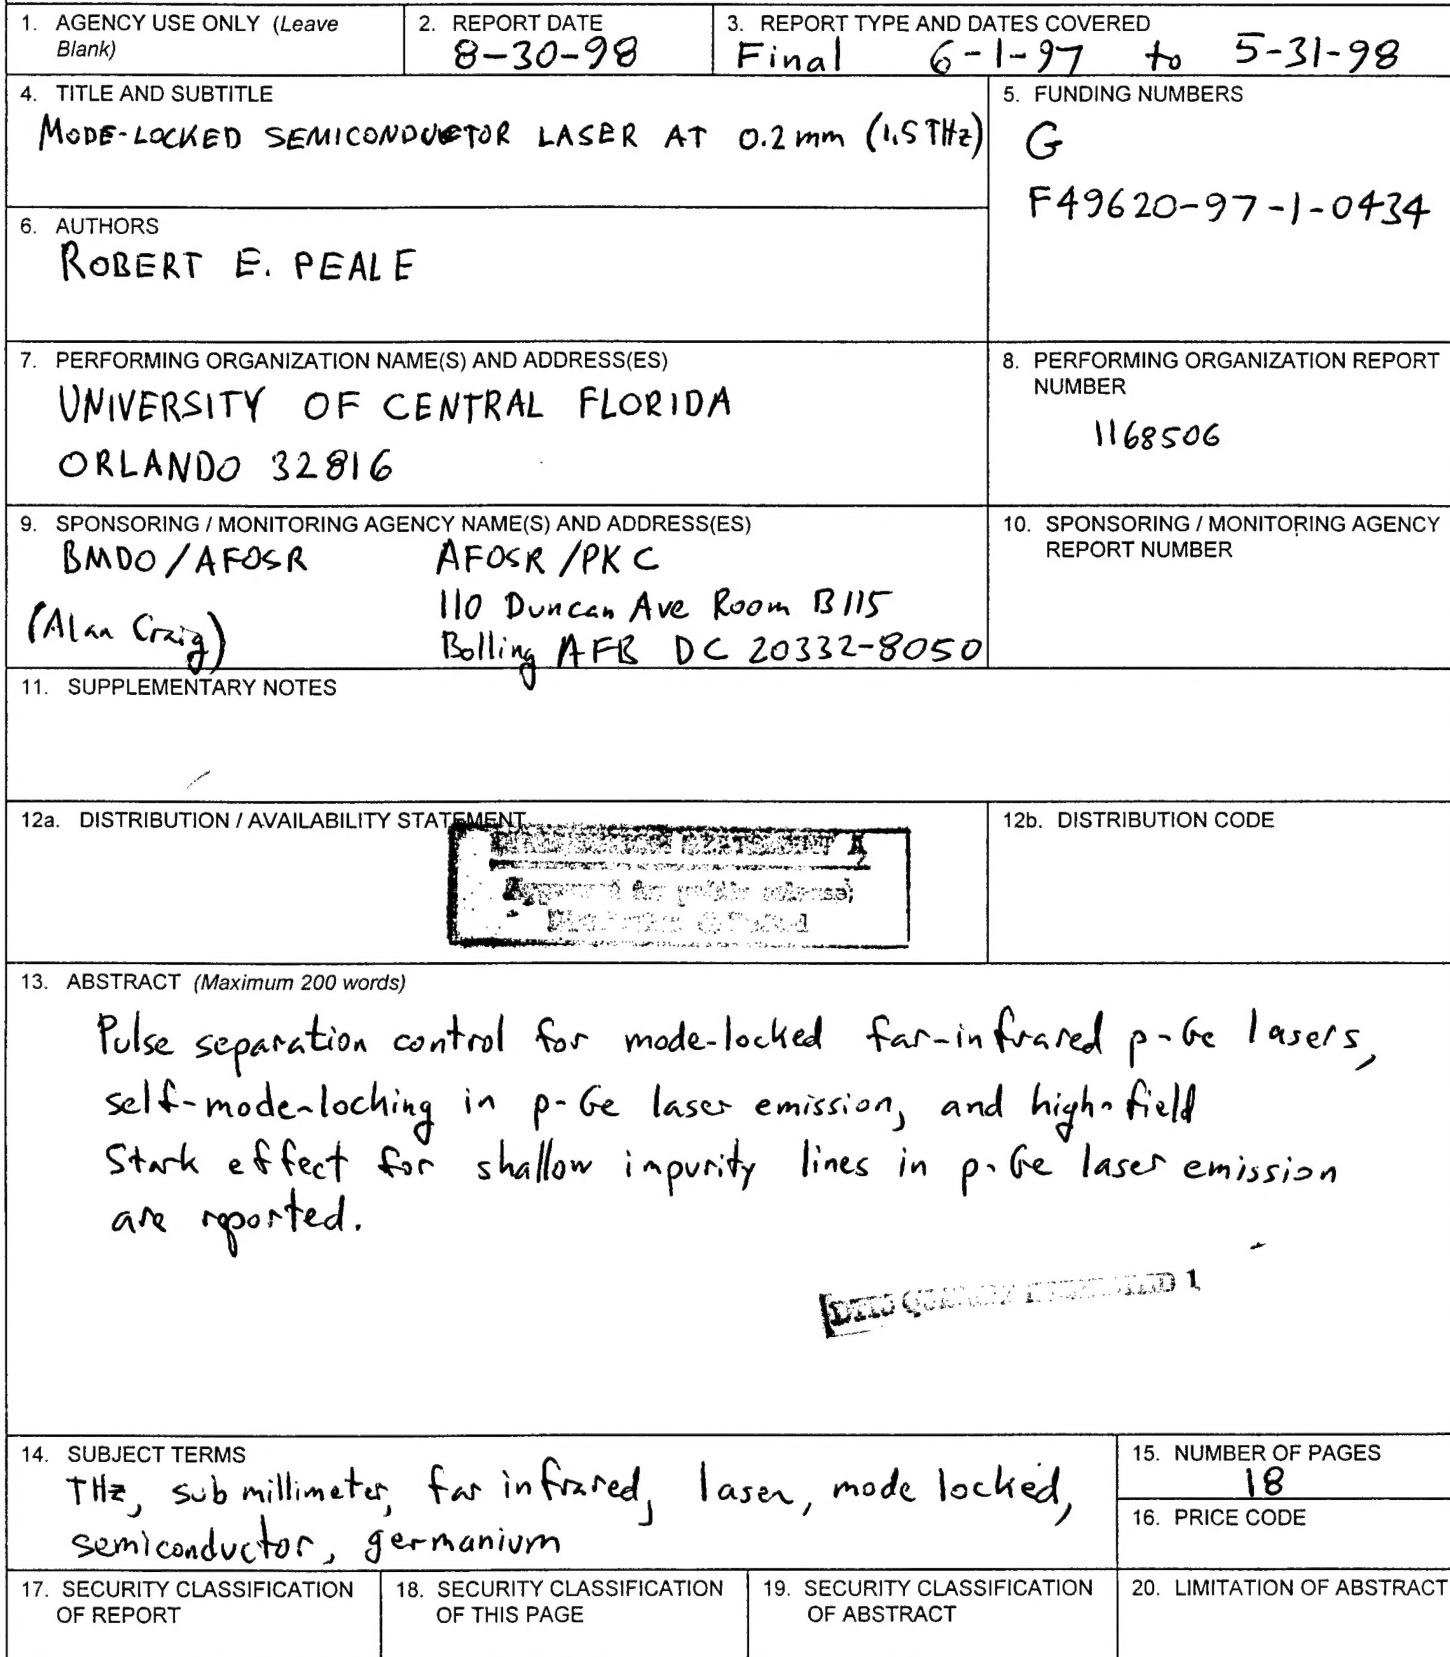 1. AGENCY USE ONLY (Leave
Blank)
2. REPORT DATE
8-30-98
3. REPORT TYPE AND DATES COVERED
Final 6-1-97 to 5-31-98
4. TITLE AND SUBTITLE
MODE-LOCKED SEMICONDUCTOR LASER AT 0.2 mm (1.5 THz)
5. FUNDING NUMBERS
G
F49620-97-1-0434
6. AUTHORS
ROBERT E. PEALE
7. PERFORMING ORGANIZATION NAME(S) AND ADDRESS(ES)
UNIVERSITY OF CENTRAL FLORIDA
ORLANDO 32816
8. PERFORMING ORGANIZATION REPORT
NUMBER
1168506
9. SPONSORING / MONITORING AGENCY NAME(S) AND ADDRESS(ES)
BMDO / AFOSR
(Alan Craig)
AFOSR / PKC
110 Duncan Ave Room B115
Bolling AFB DC 20332-8050
10. SPONSORING / MONITORING AGENCY
REPORT NUMBER
11. SUPPLEMENTARY NOTES
12a. DISTRIBUTION / AVAILABILITY STATEMENT
STATEMENT A
Approved for public release;
12b. DISTRIBUTION CODE
13. ABSTRACT (Maximum 200 words)
Pulse separation control for mode-locked far-infrared p-Ge lasers,
self-mode-locking in p-Ge laser emission, and high-field
Stark effect for shallow impurity lines in p-Ge laser emission
are reported.
14. SUBJECT TERMS
THz, submillimeter, far infrared, laser, mode locked,
semiconductor, germanium
15. NUMBER OF PAGES
18
16. PRICE CODE
17. SECURITY CLASSIFICATION
OF REPORT
18. SECURITY CLASSIFICATION
OF THIS PAGE
19. SECURITY CLASSIFICATION
OF ABSTRACT
20. LIMITATION OF ABSTRACT